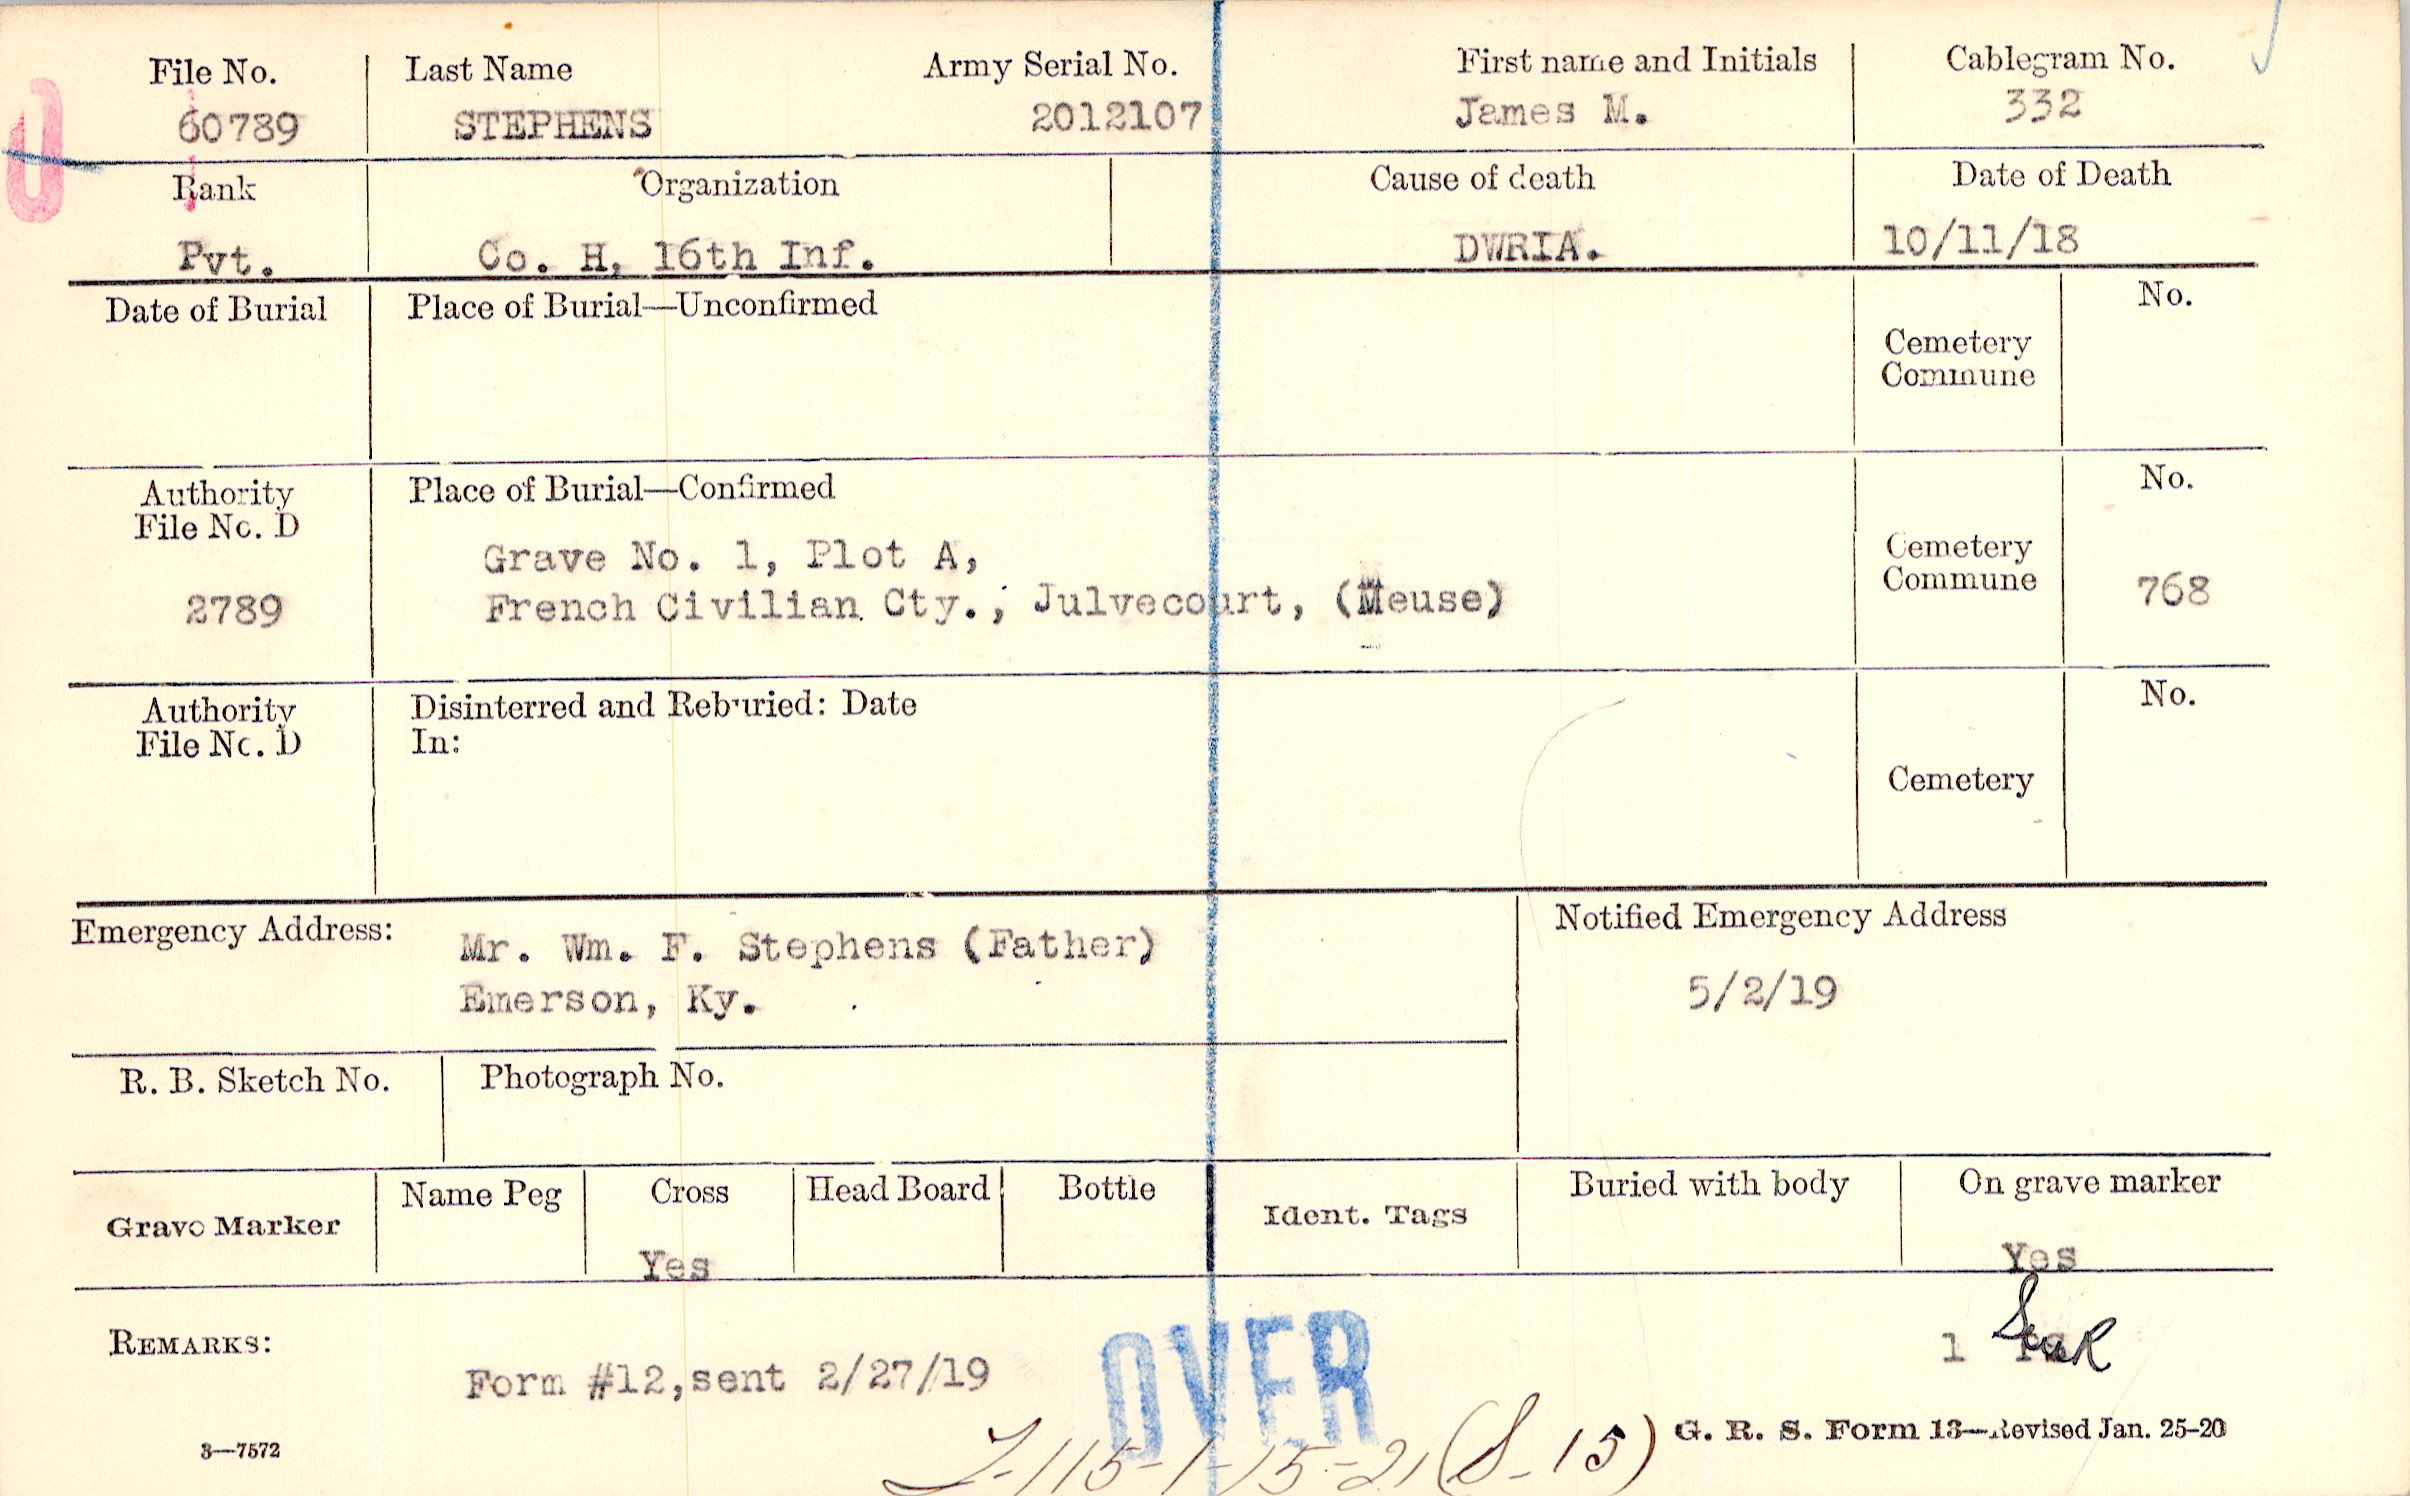 File No. Last Name Army Serial No. First name and Initials Cablegram No.
60789 STEPHENS 2012107 James M. 332
Rank Organization Cause of death Date of Death
Pvt. Co. H, 16th Inf. DWRIA. 10/11/18
Date of Burial Place of Burial—Unconfirmed No.
Cemetery
Commune
Authority Place of Burial—Confirmed No.
File No. D
Grave No. 1, Plot A, Cemetery
2789 French Civilian Cty., Julvecourt, (Meuse) Commune 768
Authority Disinterred and Reburied: Date No.
File No. D In:
Cemetery
Emergency Address: Notified Emergency Address
Mr. Wm. F. Stephens (Father)
Emerson, Ky. 5/2/19
R. B. Sketch No. Photograph No.
Name Peg Cross Head Board Bottle Buried with body On grave marker
Grave Marker Ident. Tags
Yes Yes
REMARKS: 1
Form #12,sent 2/27/19
OVER
G. R. S. Form 13—Revised Jan. 25-20
3—7572 115-1-15-21 (S-15)